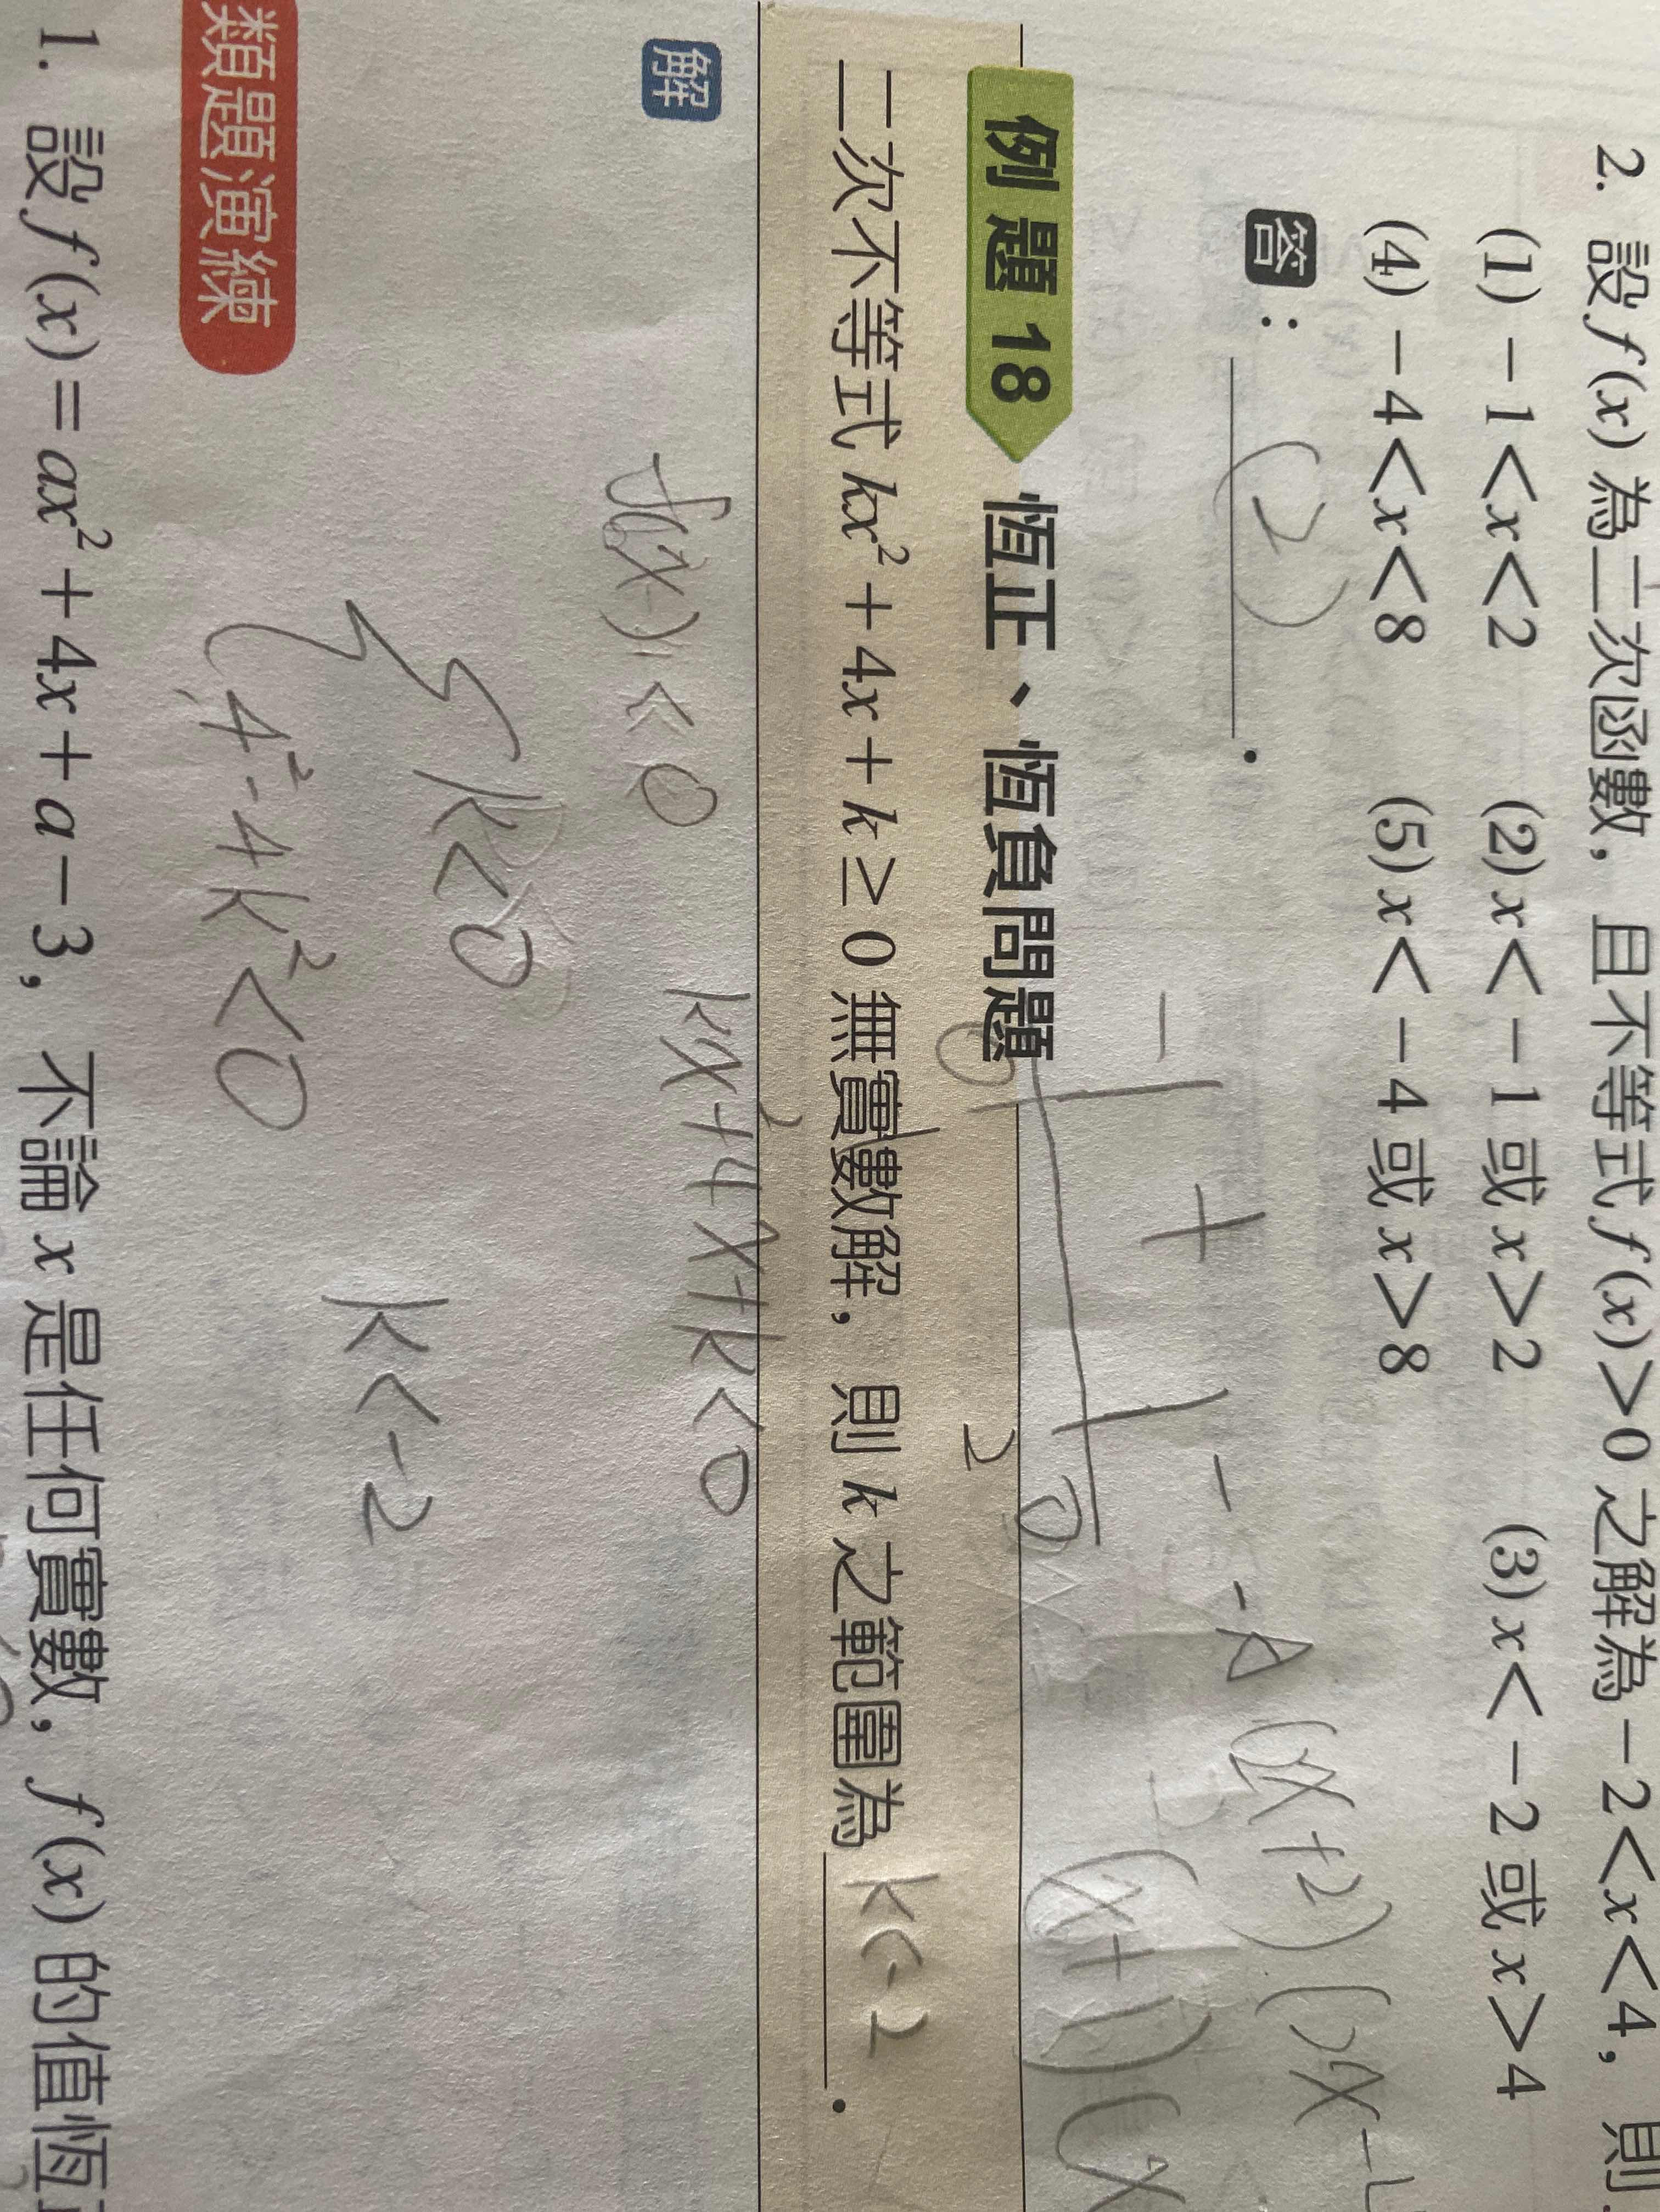 2. 設 f(x) 為二次函數，且不等式 f(x)>0 之解為 −2<x<4，則
(1) −1<x<2 (2) x<−1 或 x>2 (3) x<−2 或 x>4
(4) −4<x<8 (5) x<−4 或 x>8
答：(2).
− + −
0 2
-A(x+2)(x-4
(x+1)(x
例題 18 恆正、恆負問題
二次不等式 kx²+4x+k≥0 無實數解，則 k 之範圍為 k<-2.
解
f(x)<0 kx²+4x+k<0
k<0
4²-4k²<0
k<-2
類題演練
1. 設 f(x)=ax²+4x+a−3，不論 x 是任何實數，f(x) 的值恆